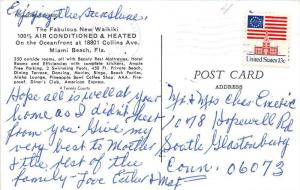 Enjoying the Sunshine.
The Fabulous New Waikiki
100% AIR CONDITIONED & HEATED
On the Oceanfront at 18801 Collins Ave.
Miami Beach, Fla.
350 outside rooms, all with Beauty Rest Mattresses, Hotel
Rooms and Efficiencies with complete kitchens. Ample
Free Parking, 3 Swimming Pools, 450 Ft. Private Beach,
Dining Terrace, Dancing, Movies, Bingo, Beach Parties,
POST CARD
ADDRESS
United States 13c
Hope all is well at your
home as I didn't hear
from you. Give my
very best to Mother
& the rest of the
family - Love
Mr & Mrs
1078 Hopewell Rd
South Glastonbury
Conn. 06073